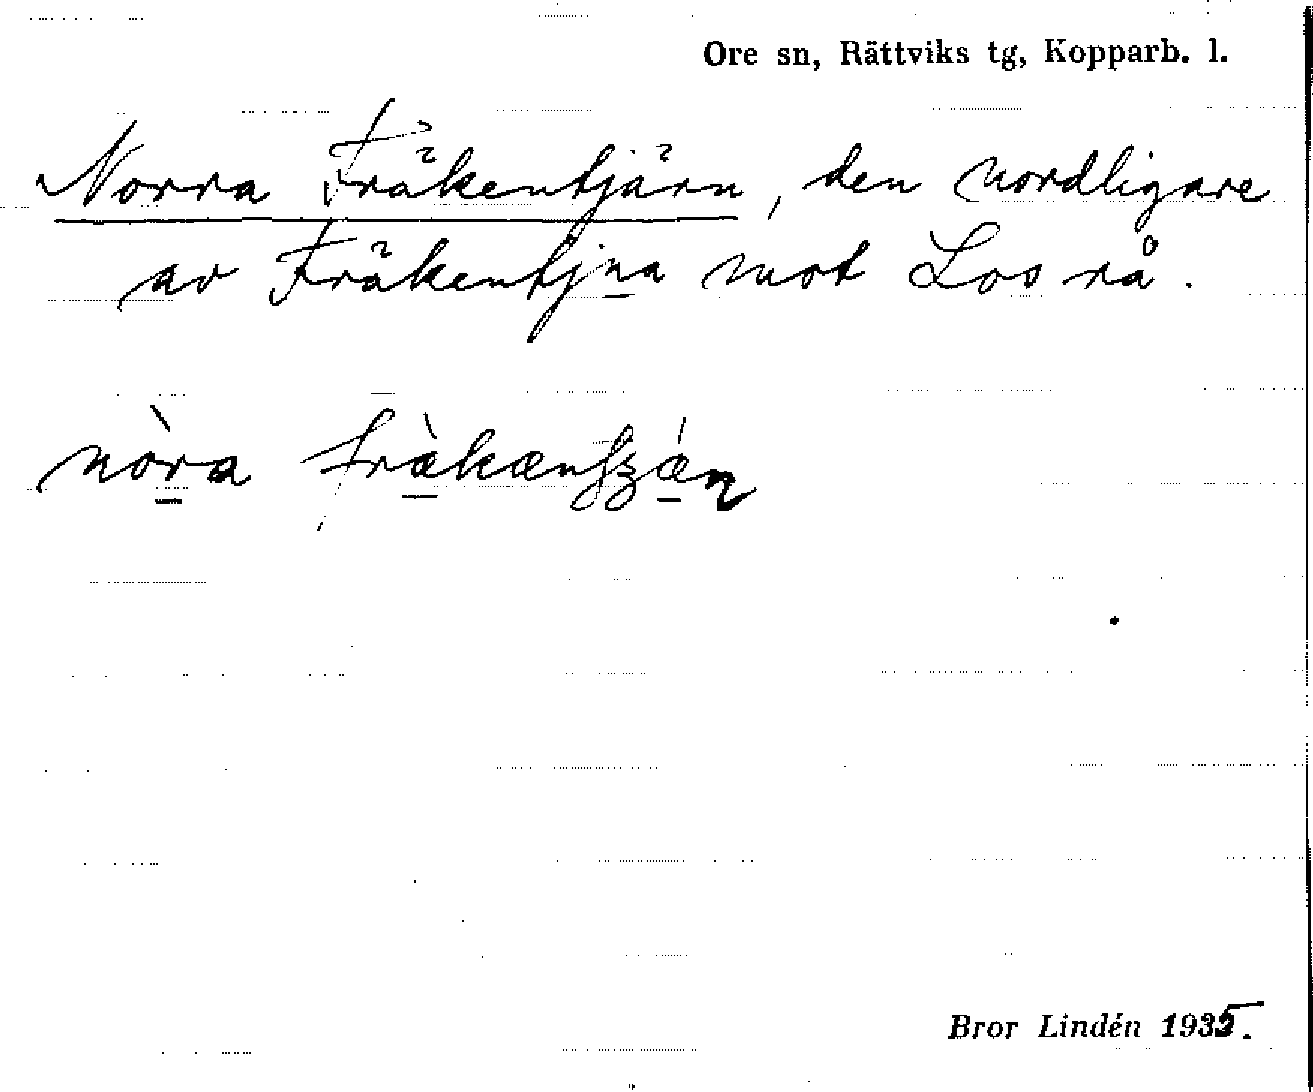 Ore sn, Rättviks tg, Kopparb. l.
Norra Fräkentjärn, den nordligare
av Fräkentjna mot Los rå.
nòra fràkæn
Bror Lindén 1935.